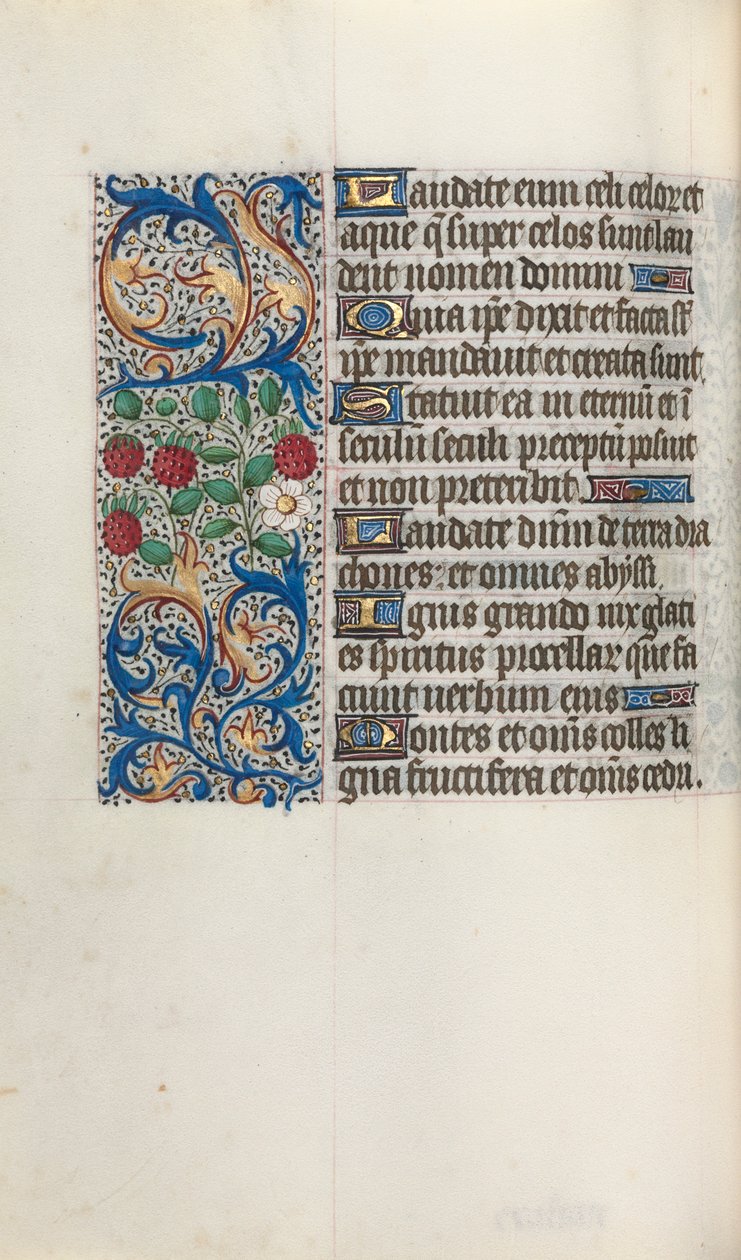 Laudate eum celi celoꝝ et
aque q̃ super celos sunt lau
dent nomen domini
Quia ip̃e dixit et facta sr̃
ip̃e mandauit et creata sunt
Statuit ea in eternũ et ĩ
seculũ seculi preceptũ posuit
et non preteribit
Laudate dñm de terra dra
chones et omnes abyssi
Ignis grando nix glati
es spiritus procellaꝝ que fa
ciunt uerbum eius
Montes et om̃s colles li
gna fructifera et om̃s cedri.